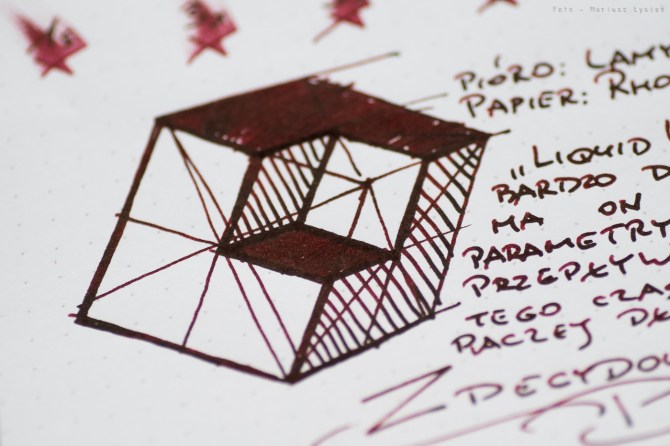 Foto - Mariusz Łysiak
PIÓRO: LAMY
PAPIER: RHO
„LIQUID
BARDZO D
MA ON
PARAMETRY
PRZEPŁYW
TEGO CZAS
RACZEJ
ZDECYDO